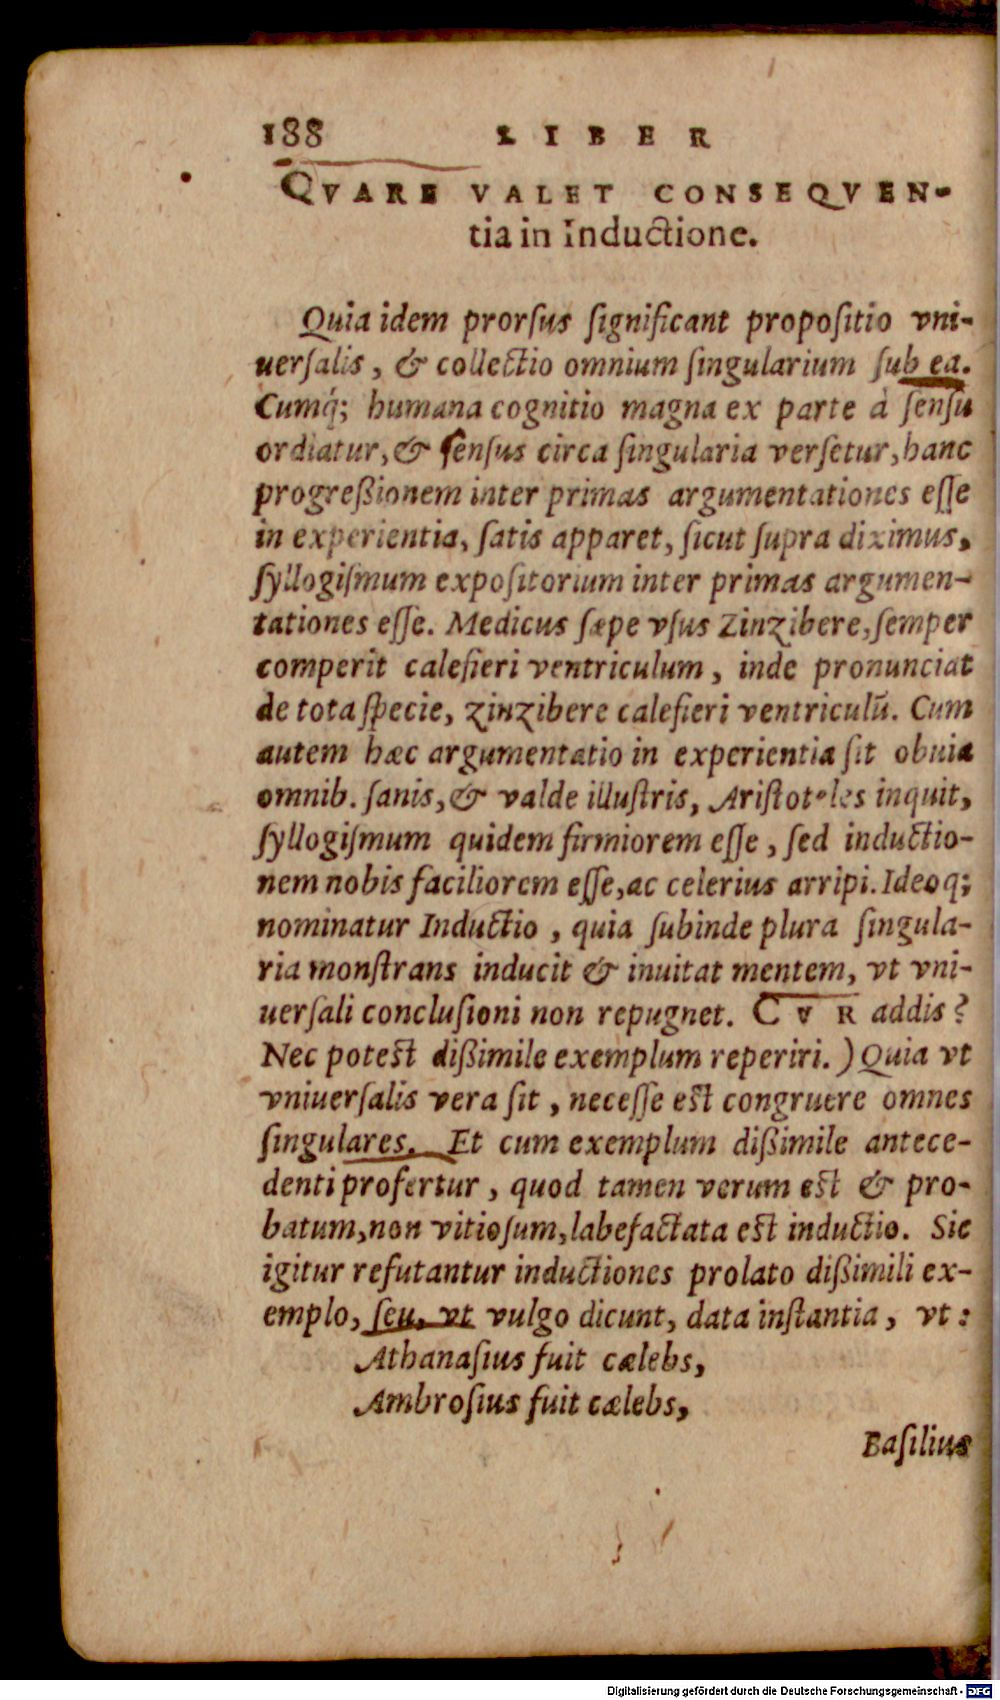 188 LIBER
QVARE VALET CONSEQVEN-
tia in Inductione.
Quia idem prorſus ſignificant propoſitio vni-
uerſalis, & collectio omnium ſingularium ſub ea.
Cumq́; humana cognitio magna ex parte à ſenſu
ordiatur, & ſenſus circa ſingularia verſetur, hanc
progreßionem inter primas argumentationes eſſe
in experientia, ſatis apparet, ſicut ſupra diximus,
ſyllogiſmum expoſitorium inter primas argumen-
tationes eſſe. Medicus ſæpe vſus Zinzibere, ſemper
comperit calefieri ventriculum, inde pronunciat
de tota ſpecie, zinzibere calefieri ventriculū. Cum
autem hæc argumentatio in experientia ſit obuia
omnib. ſanis, & valde illuſtris, Ariſtoteles inquit,
ſyllogiſmum quidem firmiorem eſſe, ſed inductio-
nem nobis faciliorem eſſe, ac celerius arripi. Ideoq;
nominatur Inductio, quia ſubinde plura ſingula-
ria monſtrans inducit & inuitat mentem, vt vni-
uerſali concluſioni non repugnet. CVR addis?
Nec poteſt dißimile exemplum reperiri.) Quia vt
vniuerſalis vera ſit, neceſſe eſt congruere omnes
ſingulares. Et cum exemplum dißimile antece-
denti profertur, quod tamen verum eſt & pro-
batum, non vitioſum, labefactata eſt inductio. Sic
igitur refutantur inductiones prolato dißimili ex-
emplo, ſeu, vt vulgo dicunt, data inſtantia, vt:
Athanaſius fuit cælebs,
Ambroſius fuit cælebs,
Baſilius
Digitalisierung gefördert durch die Deutsche Forschungsgemeinschaft - DFG